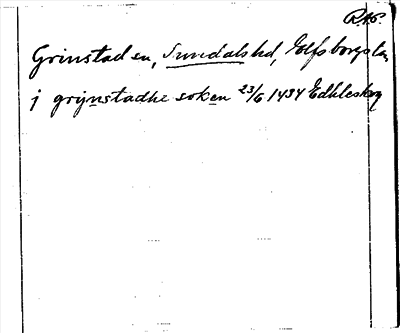 RAP.
Grinstad sn, Sundals hd, Elfsborgs län
j grijnstadhe soken 23/6 1434 Edhleskog